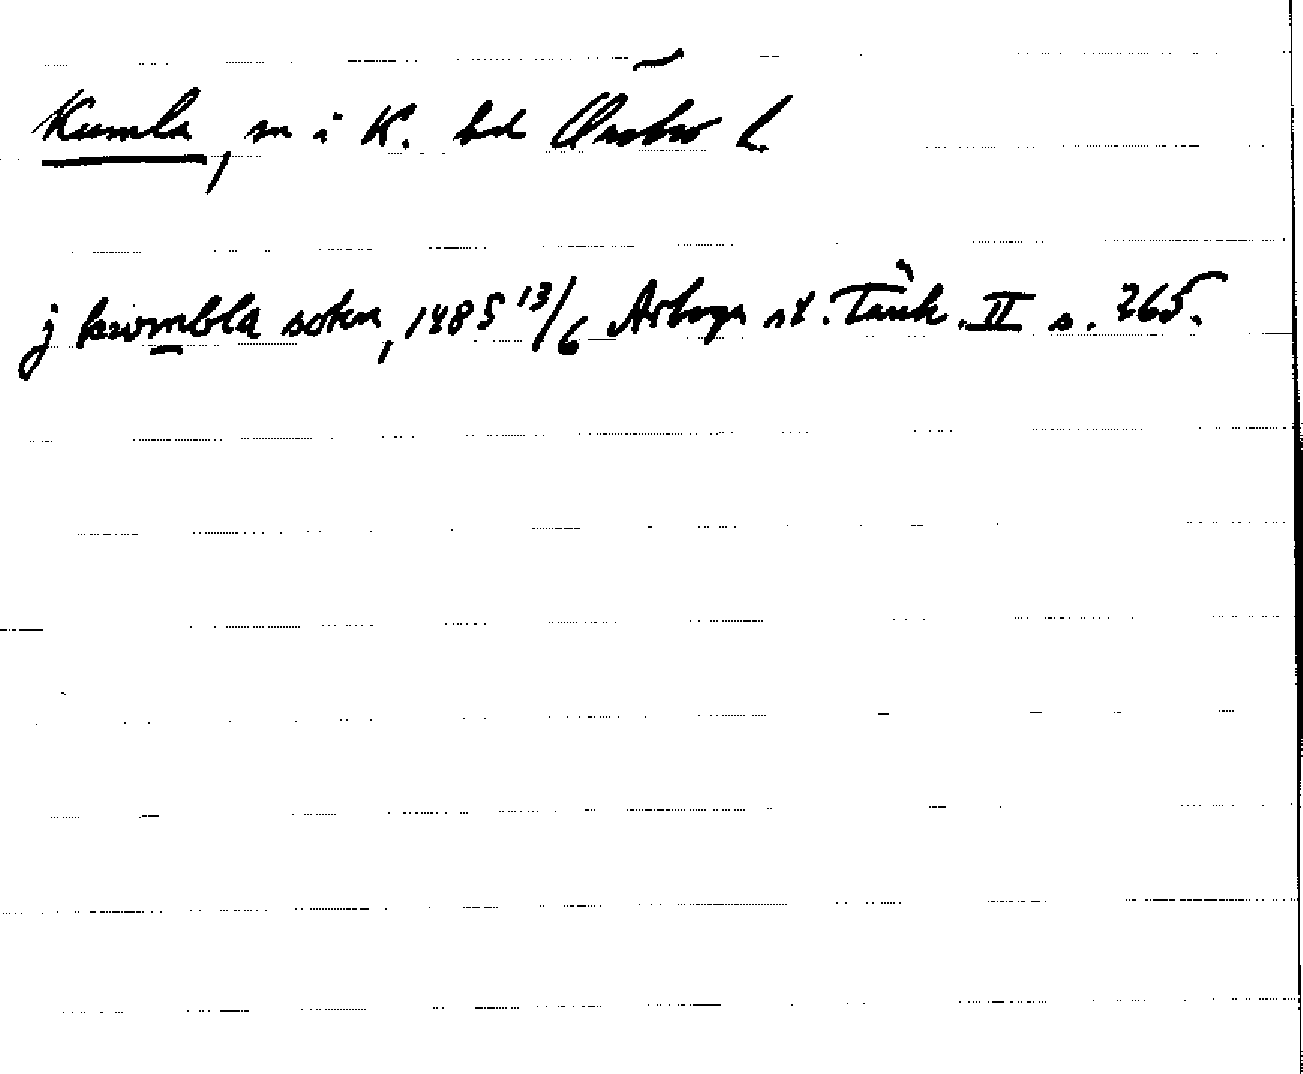 Kumla, sn i K. hd Örebro l.
j kwmbla sokn, 1485 13/6 Arboga st. Tänk. II s. 265.